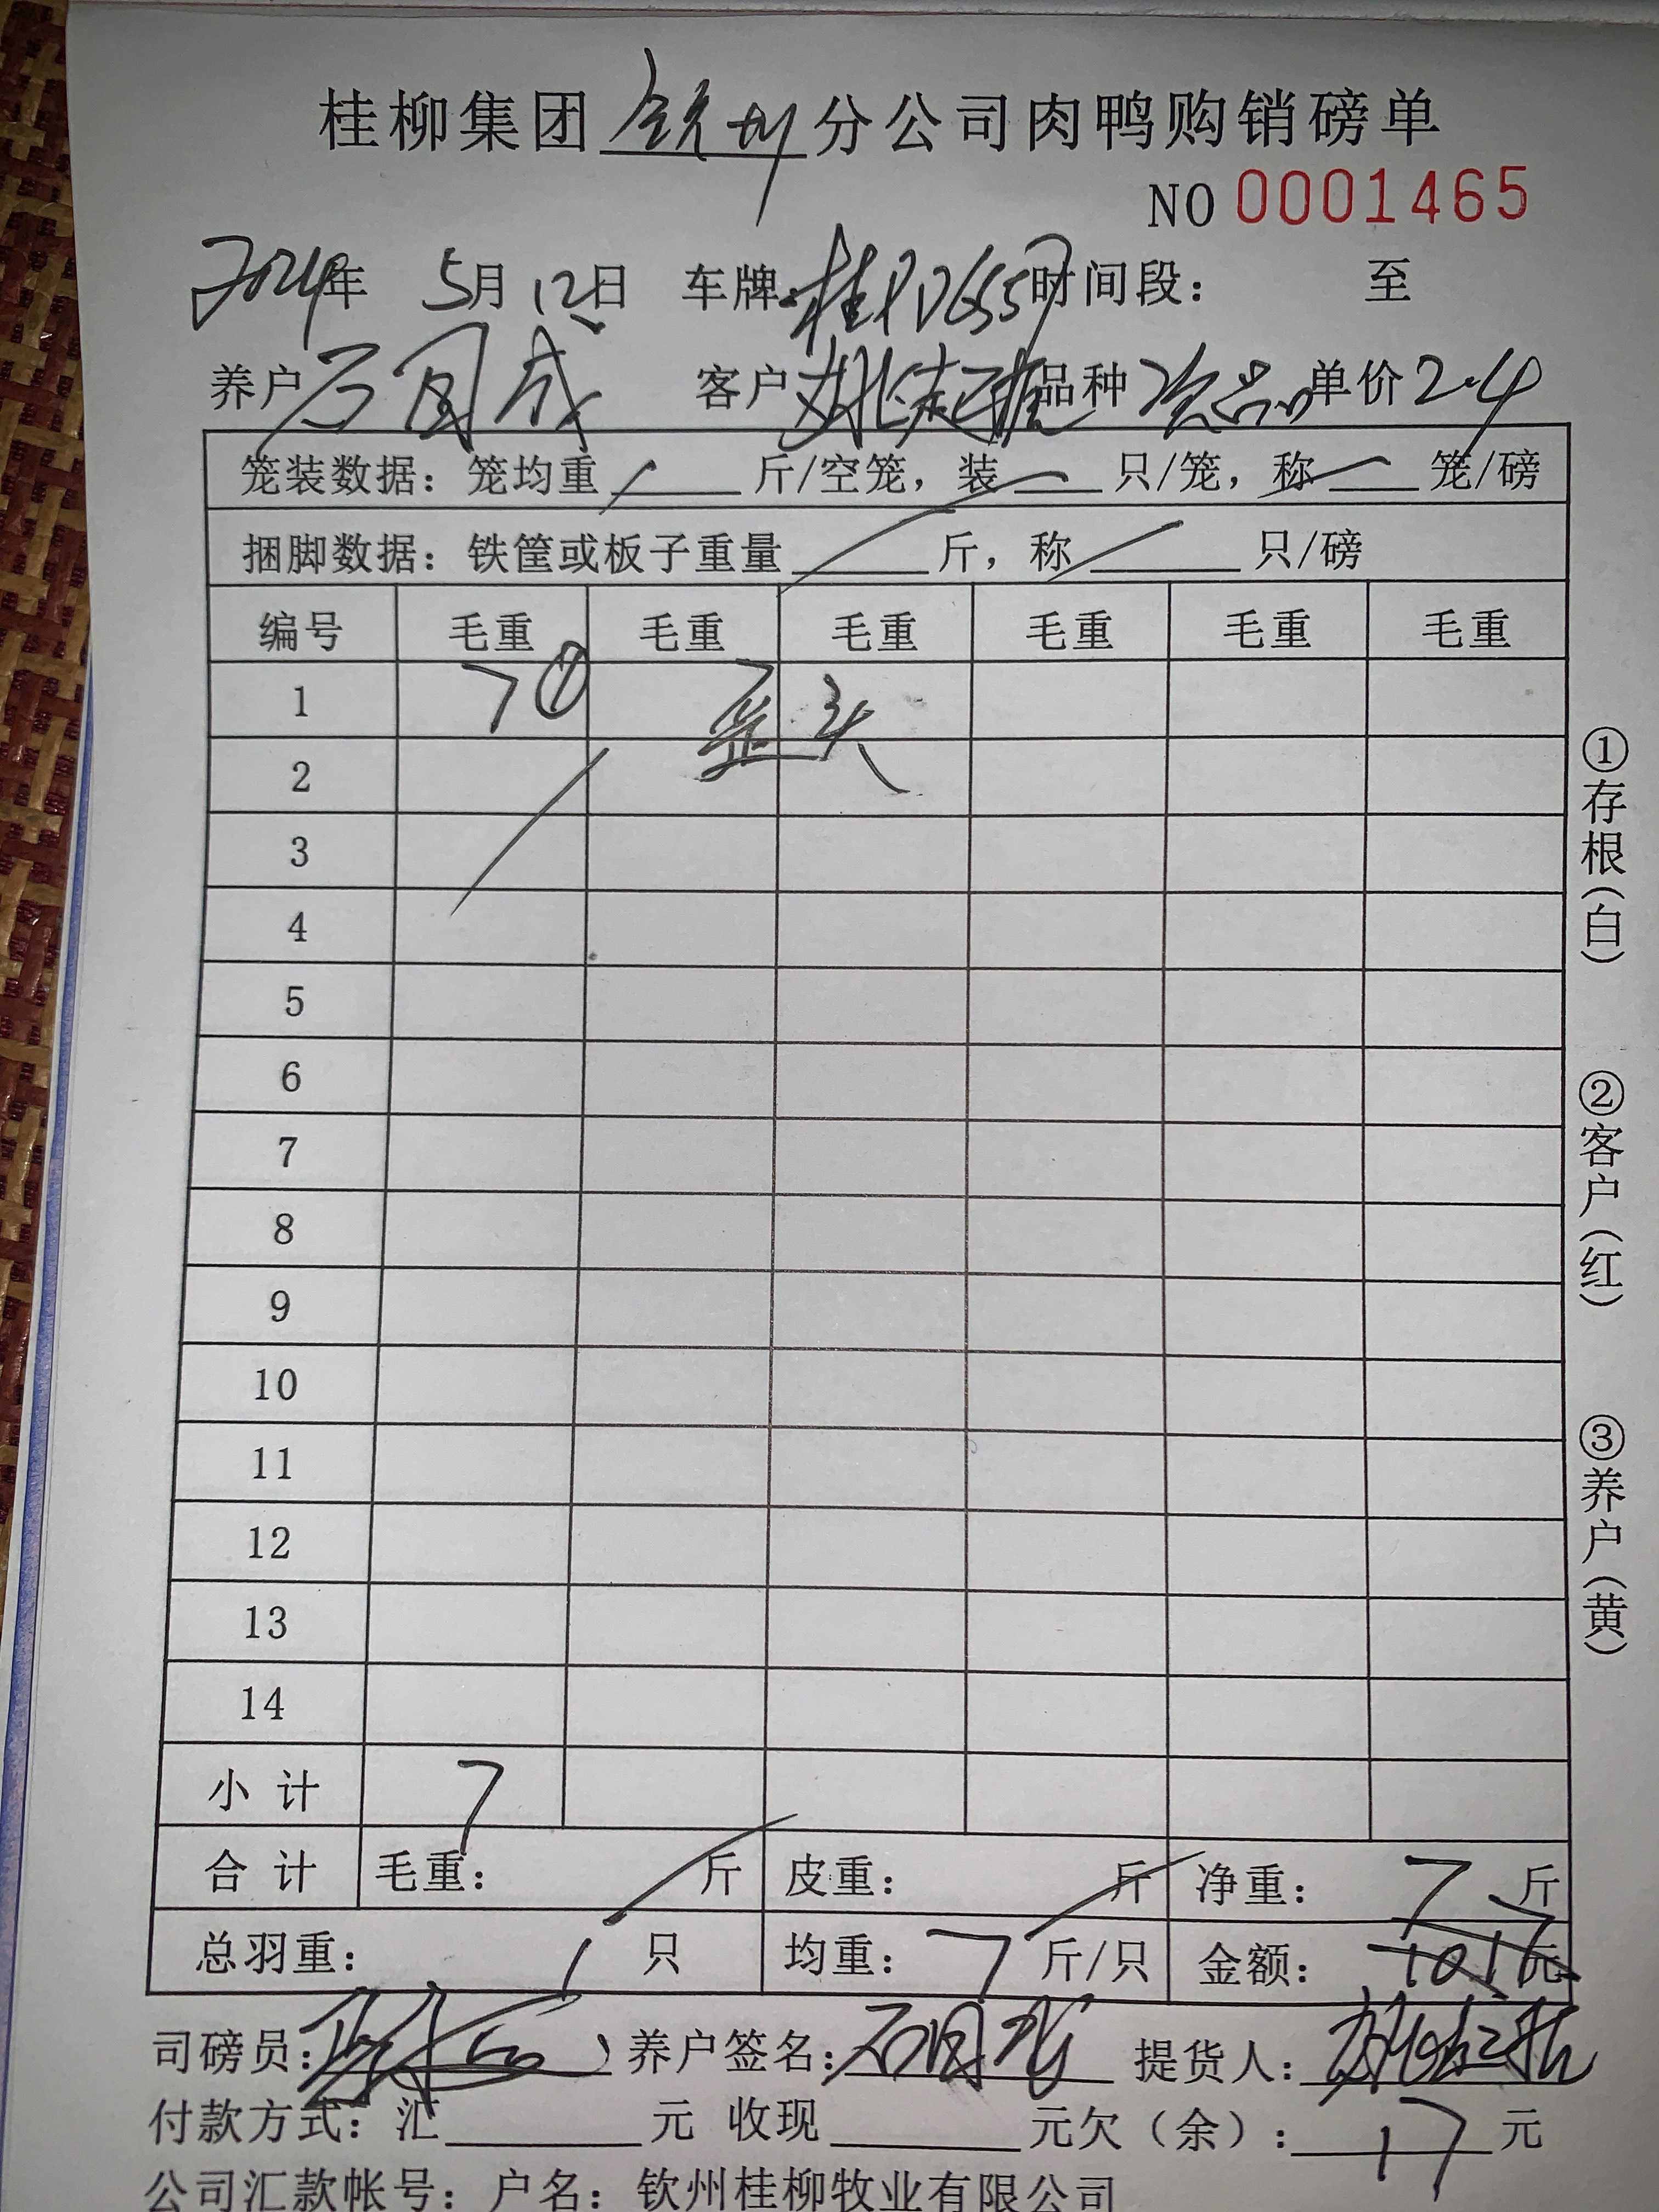 桂柳集团钦州分公司肉鸭购销磅单
NO 0001465
2024年 5月12日 车牌:桂PD6557时间段: 至
养户石国成 客户姚起推品种次品单价2.4
笼装数据:笼均重/斤/空笼,装/只/笼,称/笼/磅
捆脚数据:铁筐或板子重量/斤,称/只/磅
编号 毛重 毛重 毛重 毛重 毛重 毛重
1 7① 歪头
2 /
3
4
5
6
7
8
9
10
11
12
13
14
小计 7
合计 毛重: / 斤 皮重: / 斤 净重: 7 斤
总羽重: 1 只 均重: 7 斤/只 金额: 17元
司磅员: 养户签名:石国成 提货人:
付款方式:汇 元 收现 元欠(余):17元
公司汇款帐号:户名:钦州桂柳牧业有限公司
①存根(白)
②客户(红)
③养户(黄)